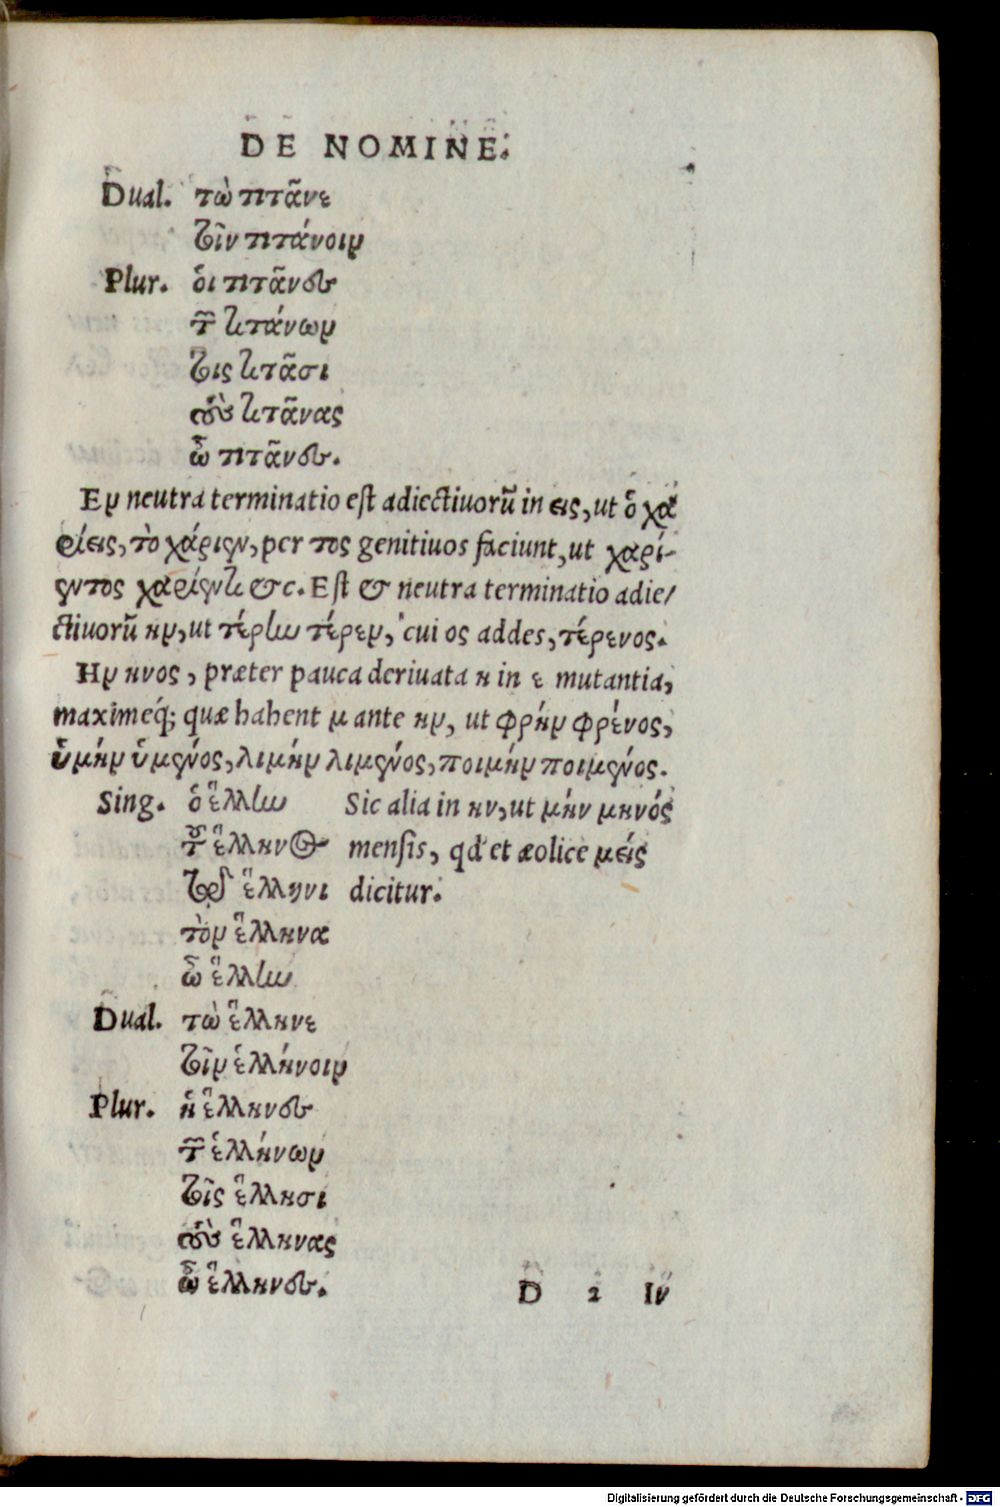 DE NOMINE.
Dual. τὼ τιτᾶνε
τοῖν τιτάνοιν
Plur. ὁι τιτᾶνες
τῶν τιτάνων
τοῖς τιτᾶσι
τοὺς τιτᾶνας
ὦ τιτᾶνες.
Εν neutra terminatio est adiectiuorũ in εις, ut ὁ χα
ρίεις, τὸ χάριεν, per τος genitiuos faciunt, ut χαρί-
εντος χαρίεντι &c. Est & neutra terminatio adie/
ctiuorũ ην, ut τέρην τέρεν, cui ος addes, τέρενος.
Ην ηνος, præter pauca deriuata η in ε mutantia,
maximeq; quæ habent μ ante ην, ut φρὴν φρένος,
ὑμὴν ὑμένος, λιμὴν λιμένος, ποιμὴν ποιμένος.
Sing. ὁ ἕλλην Sic alia in ην, ut μήν μηνός
τοῦ ἕλληνος mensis, qd' et æolice μείς
τῷ ἕλληνι dicitur.
τὸν ἕλληνα
ὦ ἕλλην
Dual. τὼ ἕλληνε
τοῖν ἑλλήνοιν
Plur. ἡ ἕλληνες
τῶν ἑλλήνων
τοῖς ἕλλησι
τοὺς ἕλληνας
ὦ ἕλληνες.
D 2 Ιν
Digitalisierung gefördert durch die Deutsche Forschungsgemeinschaft - DFG